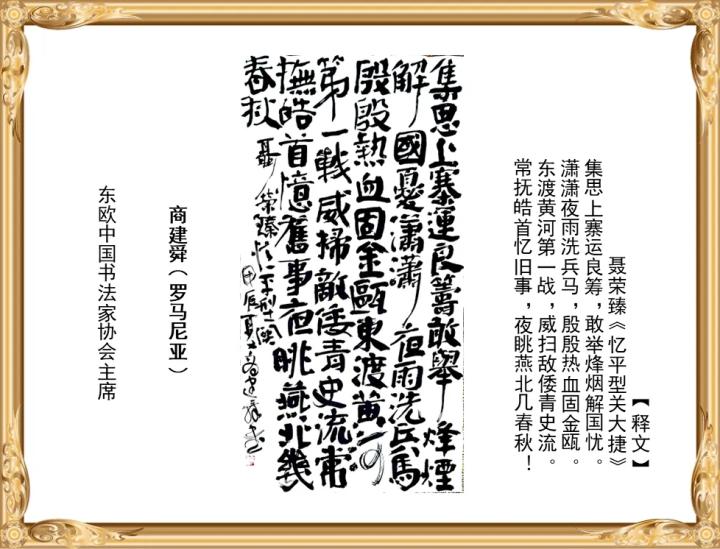 【释文】
聂荣臻《忆平型关大捷》
集思上寨运良筹，敢举烽烟解国忧。
潇潇夜雨洗兵马，殷殷热血固金瓯。
东渡黄河第一战，威扫敌倭青史流。
常抚皓首忆旧事，夜眺燕北几春秋！
集思上寨運良籌敢舉烽煙
解國憂瀟瀟夜雨洗兵馬
殷殷熱血固金甌東渡黄河
第一戰威掃敵倭青史流常
撫皓首憶舊事夜眺燕北幾
春秋 聶荣臻忆平型
甲辰夏商建舜书
商建舜（罗马尼亚）
东欧中国书法家协会主席